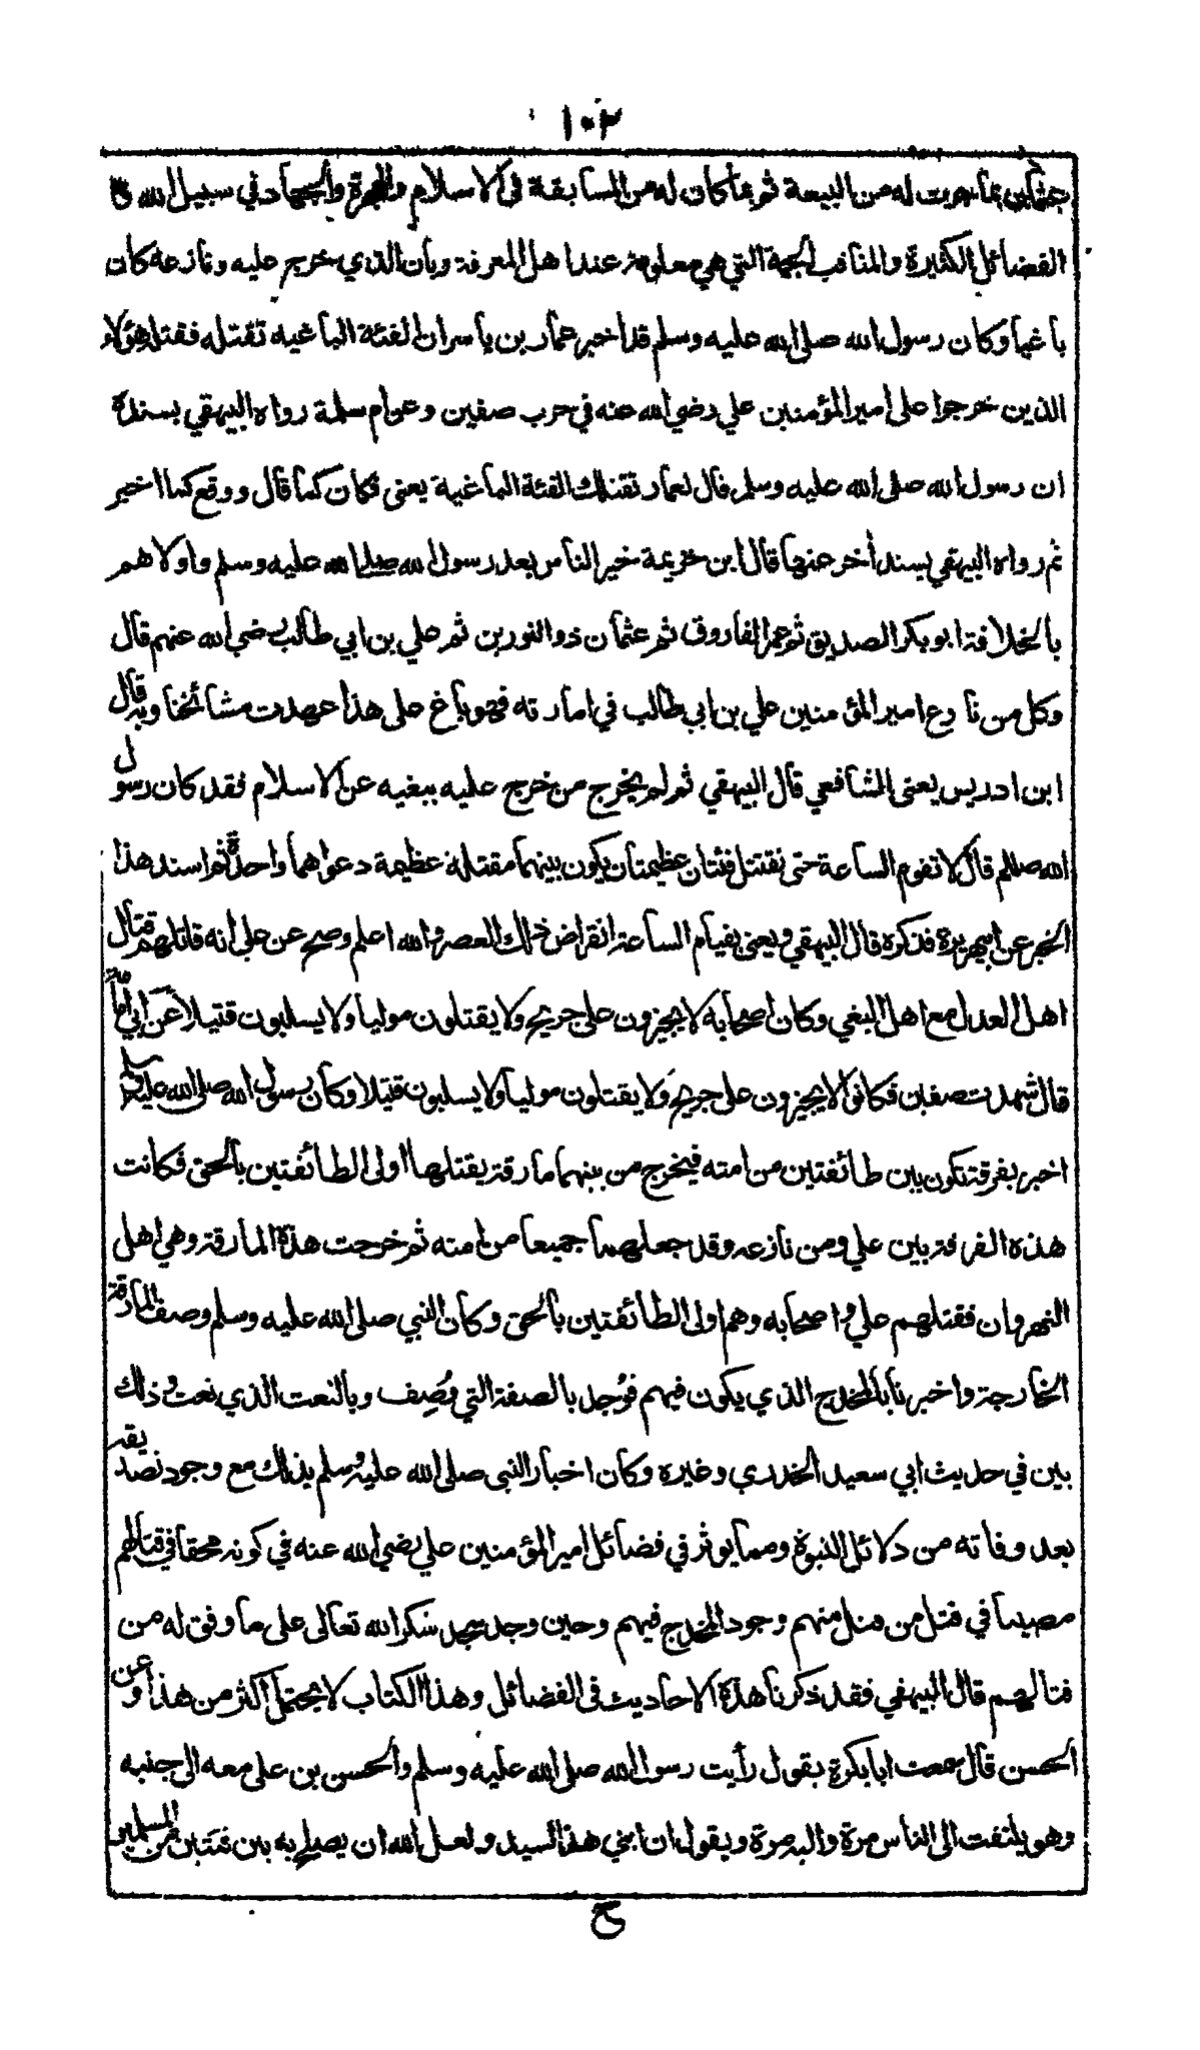 ١٠٢
بما جرت له من البيعة ثم بما كان له من المسابقة فى الاسلام والهجرة والجهاد في سبيل الله
الفضائل الكثيرة والمناقب الجمة التي هي معلومة عند اهل المعرفة وبان الذي خرج عليه ونازعه كان
باغيا وكان رسول الله صلى الله عليه وسلم قد اخبر عمار بن ياسر ان الفئة الباغيه تقتله فقتله هؤلاء
الذين خرجوا على امير المؤمنين علي رضي الله عنه في حرب صفين وعن ام سلمة رواه البيهقي بسنده
ان رسول الله صلى الله عليه وسلم قال لعمار تقتلك الفئة الباغية يعنى فكان كما قال ووقع كما اخبر
ثم رواه البيهقي بسند أخر عنها قال ابن خزيمة خير الناس بعد رسول الله صلى الله عليه وسلم واولاهم
بالخلافة ابو بكر الصديق ثم عمر الفاروق ثم عثمان ذو النورين ثم علي بن ابي طالب رضي الله عنهم قال
وكل من نازع امير المؤمنين علي بن ابي طالب في امارته فهو باغ على هذا عهدت مشائخنا وبه قال
ابن ادريس يعنى الشافعي قال البيهقي ثم لم يخرج من خرج عليه ببغيه عن الاسلام فقد كان رسول
الله صللم قال لا تقوم الساعة حتى تقتتل فئتان عظيمتان يكون بينهما مقتلة عظيمة دعواهما واحدة ثم اسند هذا
الخبر عن ابي هريرة فذكره قال البيهقي ويعنى بقيام الساعة انقراض ذلك العصر والله اعلم وصح عن علي انه قاتلهم قتال
اهل العدل مع اهل البغي وكان اصحابه لا يجيزون على جريح ولا يقتلون موليا ولا يسلبون قتيلا عن ابي امامة
قال شهدت صفين فكانوا لا يجيزون على جريح ولا يقتلون موليا ولا يسلبون قتيلا وكان رسول الله صلى الله عليه وسلم
اخبر بفرقة تكون بين طائفتين من امته فيخرج من بينهما مارقة يقتلها اولى الطائفتين بالحق فكانت
هذه الفرقة بين علي ومن نازعه وقد جعلهما جميعا من امته ثم خرجت هذه المارقة وهي اهل
النهروان فقتلهم علي واصحابه وهم اولى الطائفتين بالحق وكان النبي صلى الله عليه وسلم وصف المارقة
الخارجة واخبرنا بالمخدج الذي يكون فيهم فوُجد بالصفة التي وُصِف وبالنعت الذي نعت وذلك
بين في حديث ابي سعيد الخدري وغيره وكان اخبار النبى صلى الله عليه وسلم بذلك مع وجود تصديقه
بعد وفاته من دلائل النبوة ومما يوثر في فضائل امير المؤمنين علي رضي الله عنه في كونه محقا في قتالهم
مصيبا في قتل من قتل منهم وجود المخدج فيهم وحين وجد سجد شكرا لله تعالى على ما وفق له من
قتالهم قال البيهقي فقد ذكرنا هذه الاحاديث فى الفضائل وهذا الكتاب لا يحتمل اكثر من هذا وعن
الحسن قال سمعت ابا بكرة يقول رأيت رسول الله صلى الله عليه وسلم والحسن بن علي معه الى جنبه
وهو يلتفت الى الناس مرة واليه مرة ويقول ان ابني هذا السيد ولعل الله ان يصلح به بين فئتين من المسلمين
ح